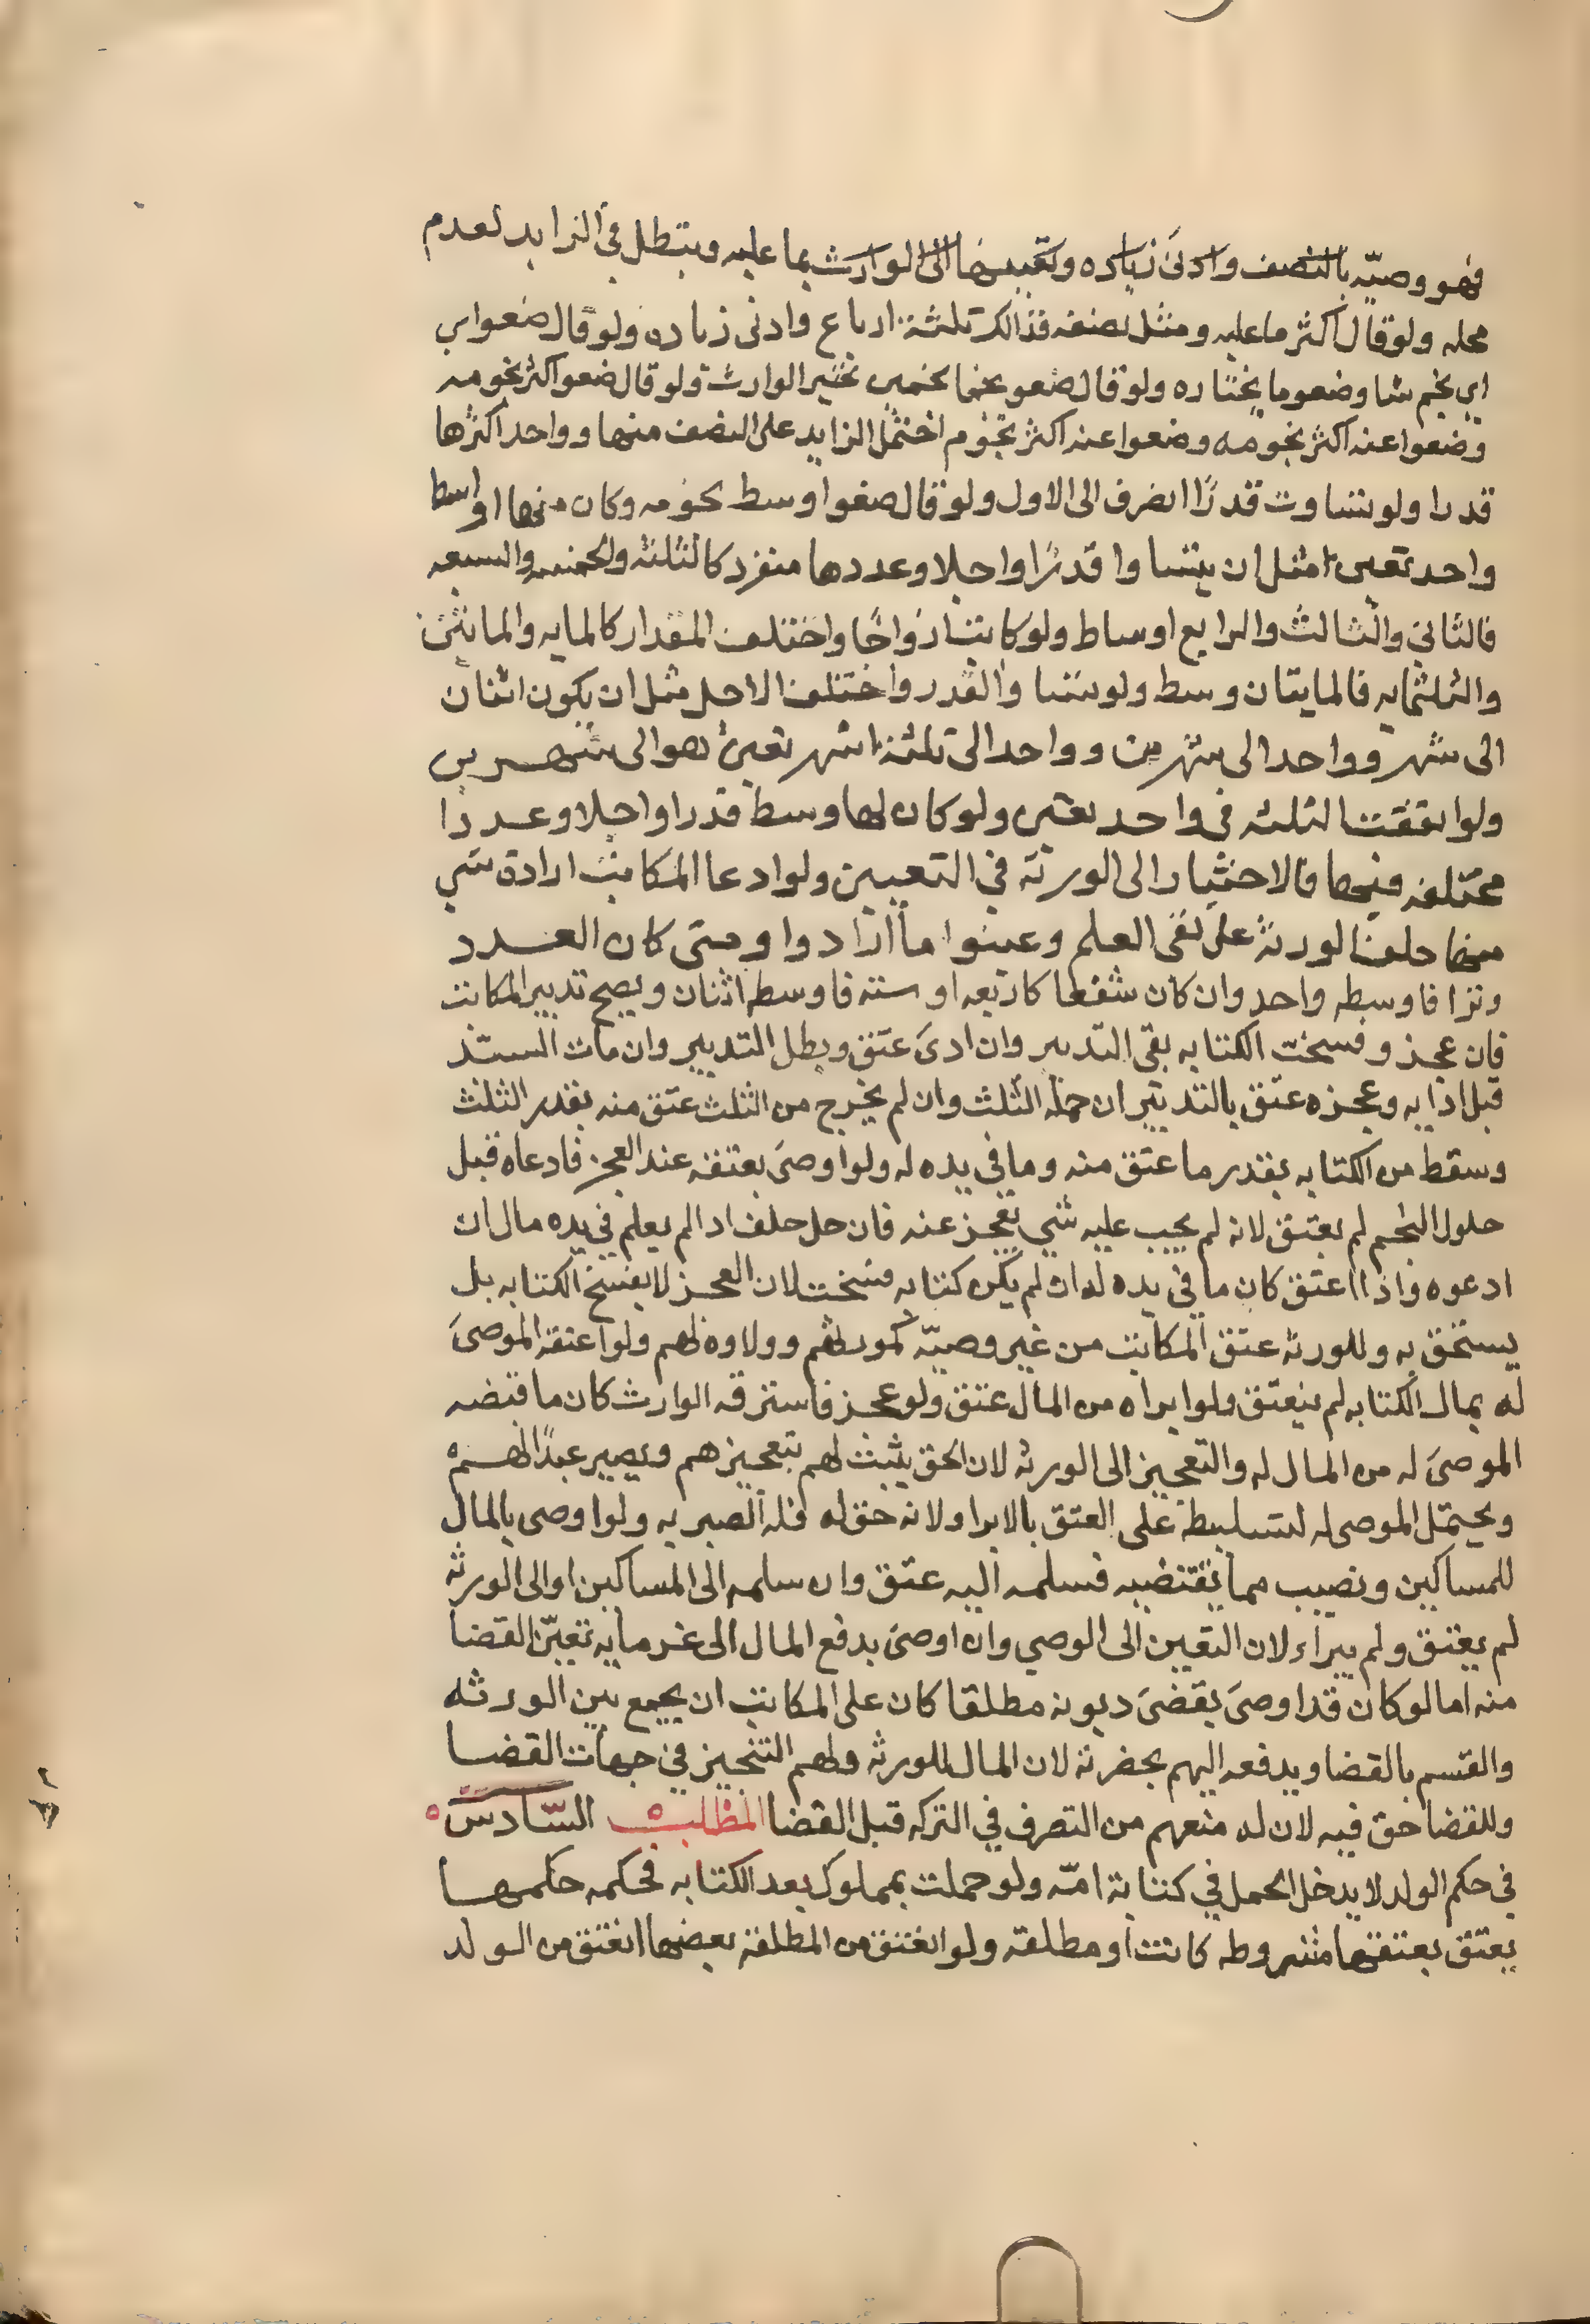 فهو وصيّه بالنصف وادنىَ زياده وتعيينها الى الوارث بما عليه ويبطل في الزايد لعدم
محله ولو قال اكثر ما عليه ومثل نصفه فذالك ثلثة ارباع وادنى زياده ولو قال ضعوا اي
اي نجم شا وضعوا ما يختاره ولو قال ضعو نجما تخير الوارث ولو قال ضعوا اكثر نجومه
وضعوا عنه اكثر نجومه وضعوا عنه اكثر نجوم احتمل الزايد على النصف منها وواحد اكثرها
قدرا ولو تساوت قدرًا انصرف الى الاول ولو قال ضعوا اوسط نجومه وكان منها اواسط
واحد تعين مثل ان يتساوا قدرًا واجلا وعددها منفرد كالثلثه والخمسه والسبعه
فالثاني والثالث والرابع اوساط ولو كانت ازواجًا واختلف المقدار كالمايه والماتين
والثلثمايه فالمايتان وسط ولو تساوا القدر واختلف الاجل مثل ان يكون اثنان
الى شهر وواحد الى شهرين وواحد الى ثلثة اشهر تعين هو الى شهرين
ولو اتفقت الثلثه في واحد تعين ولو كان لها وسط قدرا واجلا وعددًا
مختلفه فيها فالاختيار الى الورثه في التعيين ولو ادعا المكاتب ارادة شي
منها حلف الورثة على نفي العلم وعينوا ما ارادوا ومتى كان العدد
وترا فاوسطه واحد وان كان شفعا كاربعه او سته فاوسطه اثنان ويصح تدبير المكاتب
فان عجز وفسخت الكتابه بقى التدبير وان ادىَ عتق وبطل التدبير وان مات السيد
قبل ادايه وعجزه عتق بالتدبير ان حمله الثلث وان لم يخرج من الثلث عتق منه بقدر الثلث
وسقط من الكتابه بقدر ما عتق منه وما في يده له ولو اوصىَ بعتقه عند العجز فادعاه قبل
حلول النجم لم يعتق لانه لم يجب عليه شي يعجز عنه فان حل حلف اذا لم يعلم في يده مال ان
ادعوه واذا اعتق كان ما في يده له ان لم يكن كتابه فسخت لان العجز لا يفسخ الكتابه بل
يستحق به وللورثه عتق المكاتب من غير وصيّه كمورثهم وولاوه لهم ولو اعتقه الموصىَ
له بمال الكتابه لم ينعتق ولو ابراه من المال عتق ولو عجز فاسترقه الوارث كان ما قبضه
الموصىَ له من المال له والتعجيز الى الورثه لان الحق يثبت لهم بتعجيزهم ويصير عبدًا لهم ه
ويحتمل الموصى له لتسليطه على العتق بالابرا ولانه حق له فله الصبر به ولو اوصى بالمال
للمساكين ونصب مما يقتضيه فسلمه اليه عتق وان سلمه الى المساكين او الى الورثه
لم يعتق ولم يبراء لان التعين الى الوصي وان اوصىَ بدفع المال الى غرمايه تعيّن القضا
منه اما لو كان قد اوصىَ بقضىَ ديونه مطلقا كان على المكاتب ان يجمع بين الورثه
والقسم بالقضا ويدفعه اليهم بحضرته لان المال للورثه ولهم التخيير في جهات القضا
وللقضا حق فيه لان له منعهم من التصرف في التركه قبل القضا المطلب السّادس ه
في حكم الولد لا يدخل الحمل في كتابة امّه ولو حملت بمملوك بعد الكتابه فحكمه حكمها
يعتق بعتقها مشروطه كانت او مطلقه ولو انعتق من المطلقه بعضها انعتق من الولد